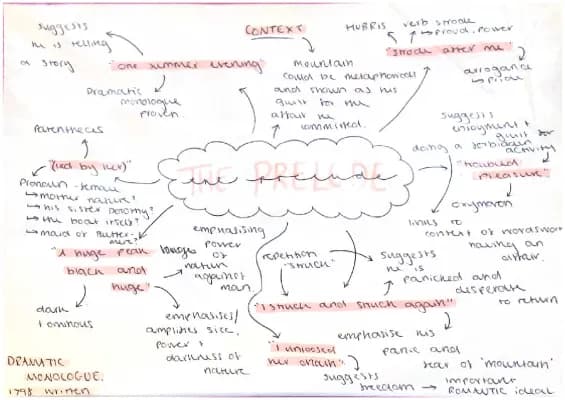 suggests
he is telling
a story
"one summer evening"
Dramatic
monologue
proven.
CONTEXT
mountain
could be metaphorical
and shown as his
guilt for the
affair he
committed.
HUBRIS
verb strode
→ proud, power
"strode after me"
arrogance
→ pride
suggests
enjoyment +
guilt for
doing a forbidden
activity
"troubled
pleasure"
oxymoron
links to
context of wordsworth
having an
affair.
parenthesis
"(led by her)
Pronoun - female
→ mother nature?
→ his sister Dorothy?
→ the boat itself?
→ maid of Butter-
mere?
THE PRELUDE
the prelude
"A huge peak
black and
huge"
dark
emphasising
power
of
nature
against
man.
emphasises/
amplifies size,
power +
darkness of
nature
repetition
"struck"
suggests
he is
panicked and
desperate
to return
"I struck and struck again"
emphasise his
panic and
fear of 'mountain'
"I unloosed
her chain"
suggests
freedom → important
ROMANTIC ideal
DRAMATIC
MONOLOGUE.
1798 written